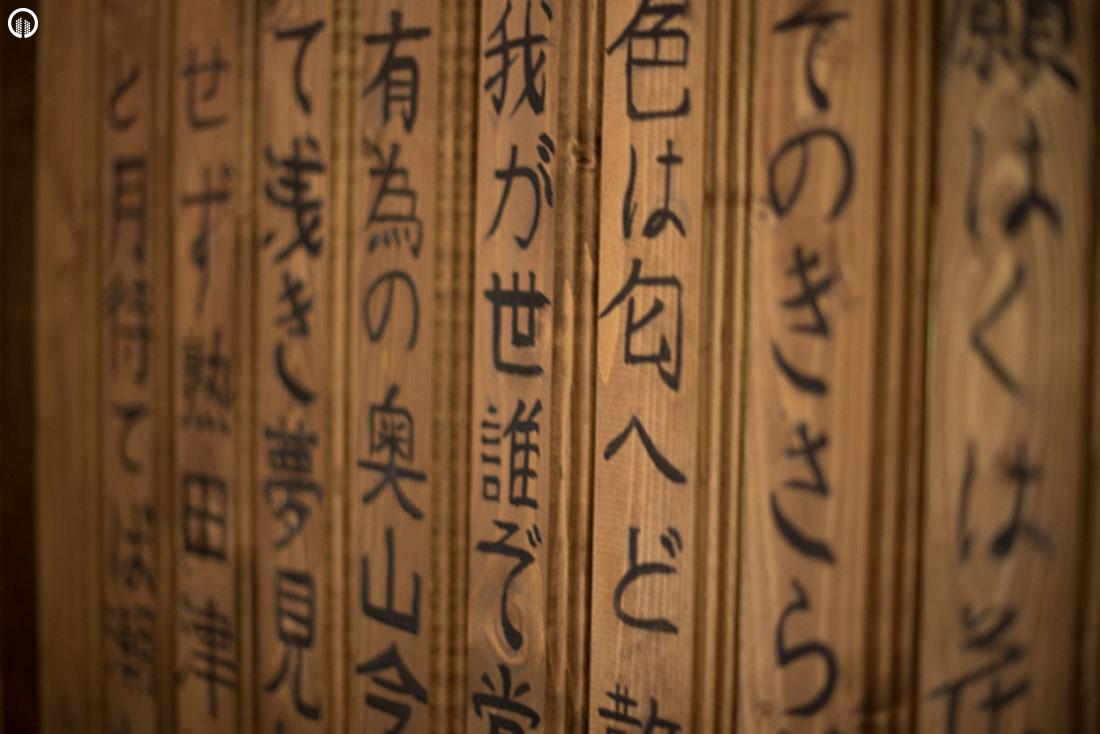 願はくは花
そのきさら
色は匂へど散
我が世誰ぞ常
有為の奥山今
て浅き夢見
せず熟田津
と月待て